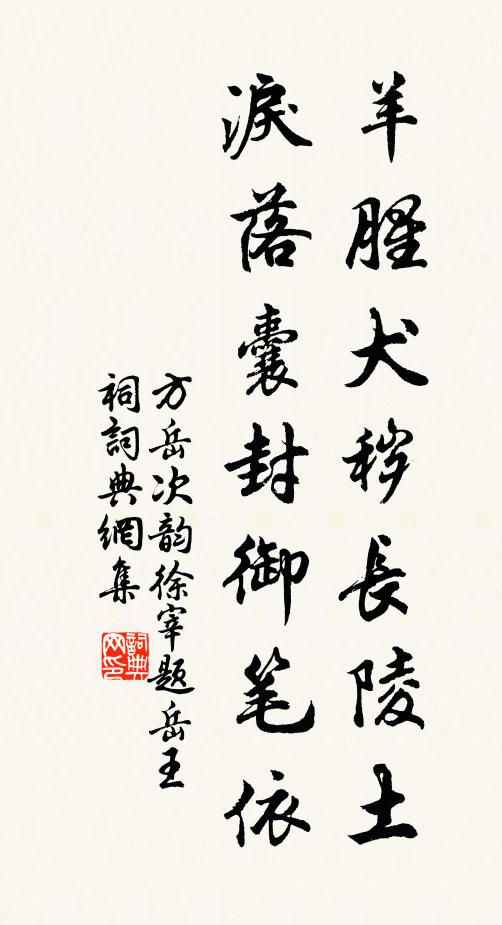 羊腥犬秽長陵土
淚落囊封御笔依
方岳次韵徐宰题岳王
祠詞典網集
詞典
网印